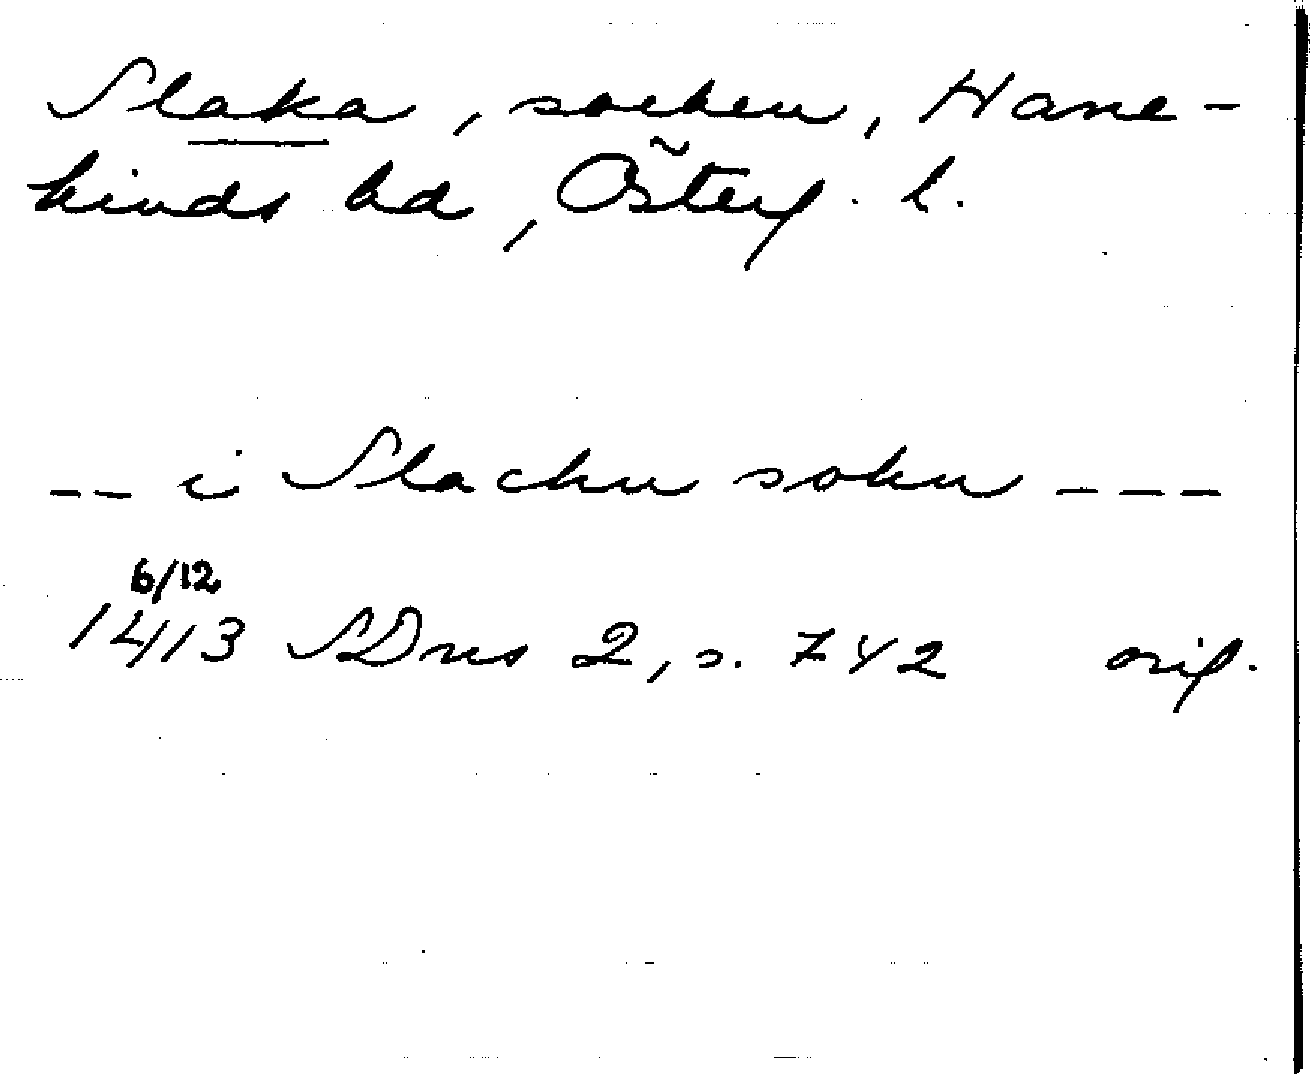 Slaka, socken, Hane-
kinds hd, Österg. l.
-- i Slachu sokn ---
6/12
1413 SDns 2, s. 742 orig.